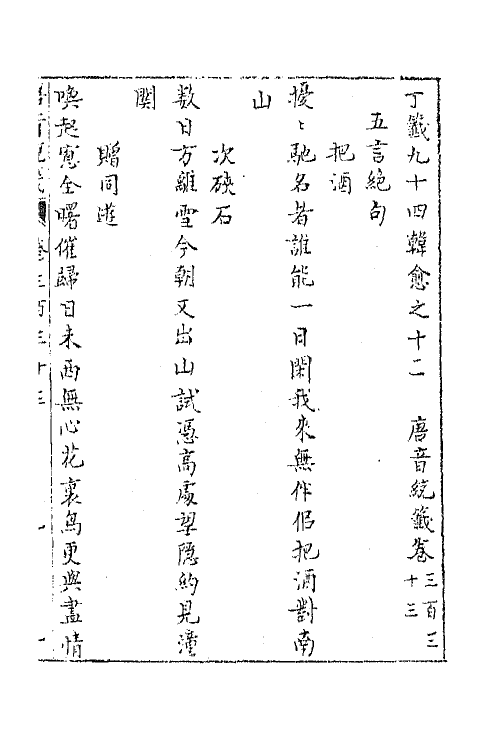 丁籤九十四韓愈之十二　唐音統籤卷三百三十三
五言絶句
把酒
擾〻馳名者誰能一日閑我來無伴侣把酒對南
山
次硤石
数日方離雪今朝又出山試憑高處望隱約見潼
関
贈同遊
喚起窻全曙催歸日未西無心花裏鳥更與盡情